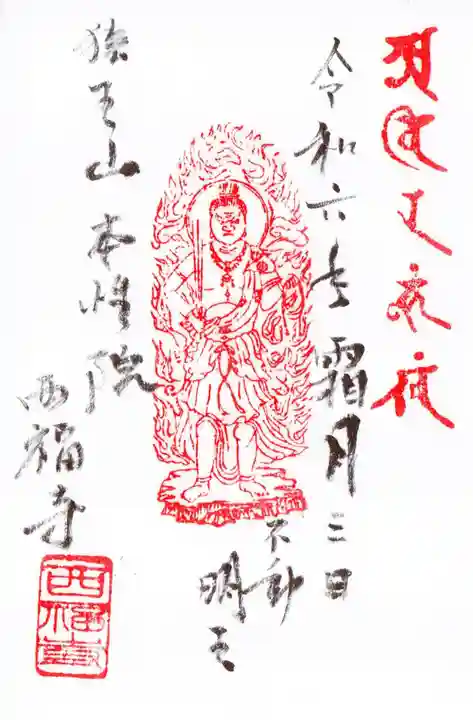 令和六年霜月三日
不動
明王
独王山 本性院
西福寺
西福寺